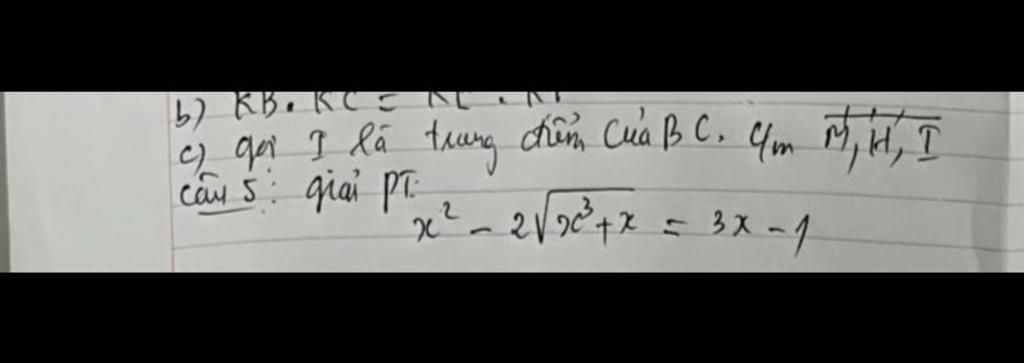 b) KB. KC =
c) gọi I là trung điểm của BC. c/m M, H, I
câu 5: giải PT:
x² - 2√(x³+x) = 3x - 1